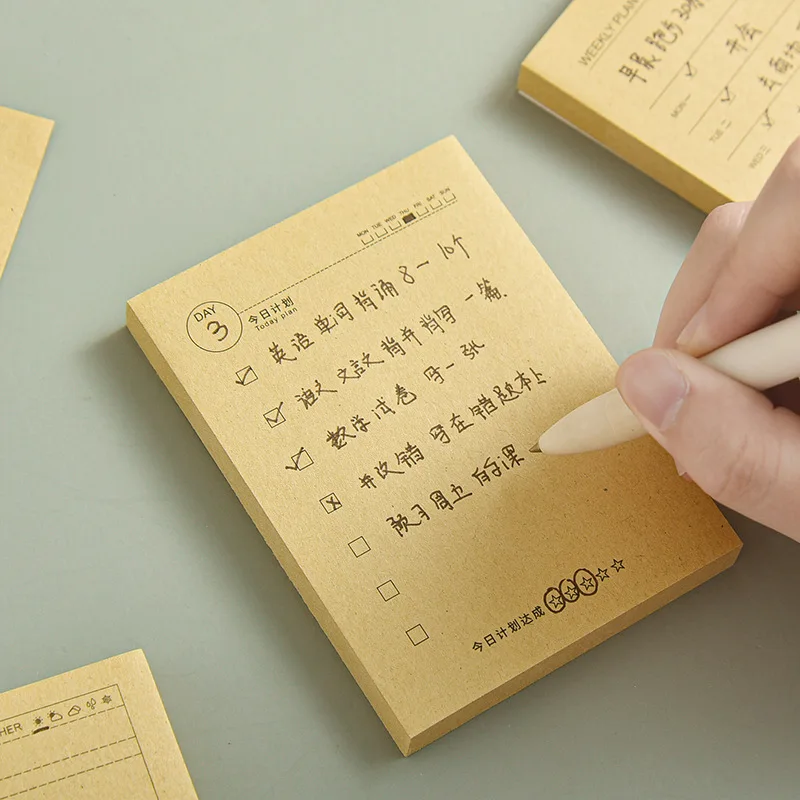 WEEKLY PLAN
早晨 跑步 30
MON 一
开会
TUE 二
WED 三
MON TUE WED THU FRI SAT SUN
DAY 3
今日计划
Today plan
英语 单词 背诵 8一10个
语文 文言文 背并背写 一篇.
数学 试卷 写一张
并改错 写在错题本上
预习周五的课
今日计划达成
HER